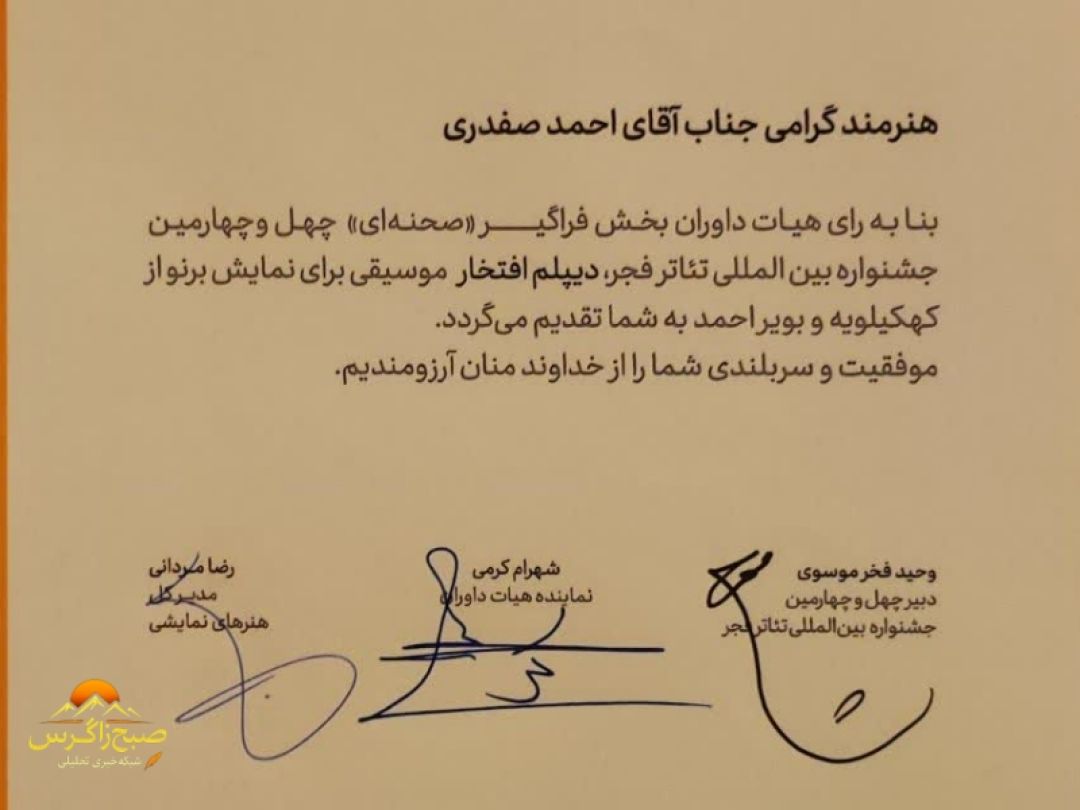 هنرمند گرامی جناب آقای احمد صفدری
بنا به رای هیات داوران بخش فراگیـــــر «صحنه‌ای» چهل وچهارمین
جشنواره بین المللی تئاتر فجر، دیپلم افتخار موسیقی برای نمایش برنو از
کهکیلویه و بویر احمد به شما تقدیم می‌گردد.
موفقیت و سربلندی شما را از خداوند منان آرزومندیم.
وحید فخر موسوی
دبیر چهل وچهارمین
جشنواره بین‌المللی تئاتر فجر
شهرام کرمی
نماینده هیات داوران
رضا مردانی
مدیر کل
هنرهای نمایشی
صبح زاگرس
شبکه خبری تحلیلی